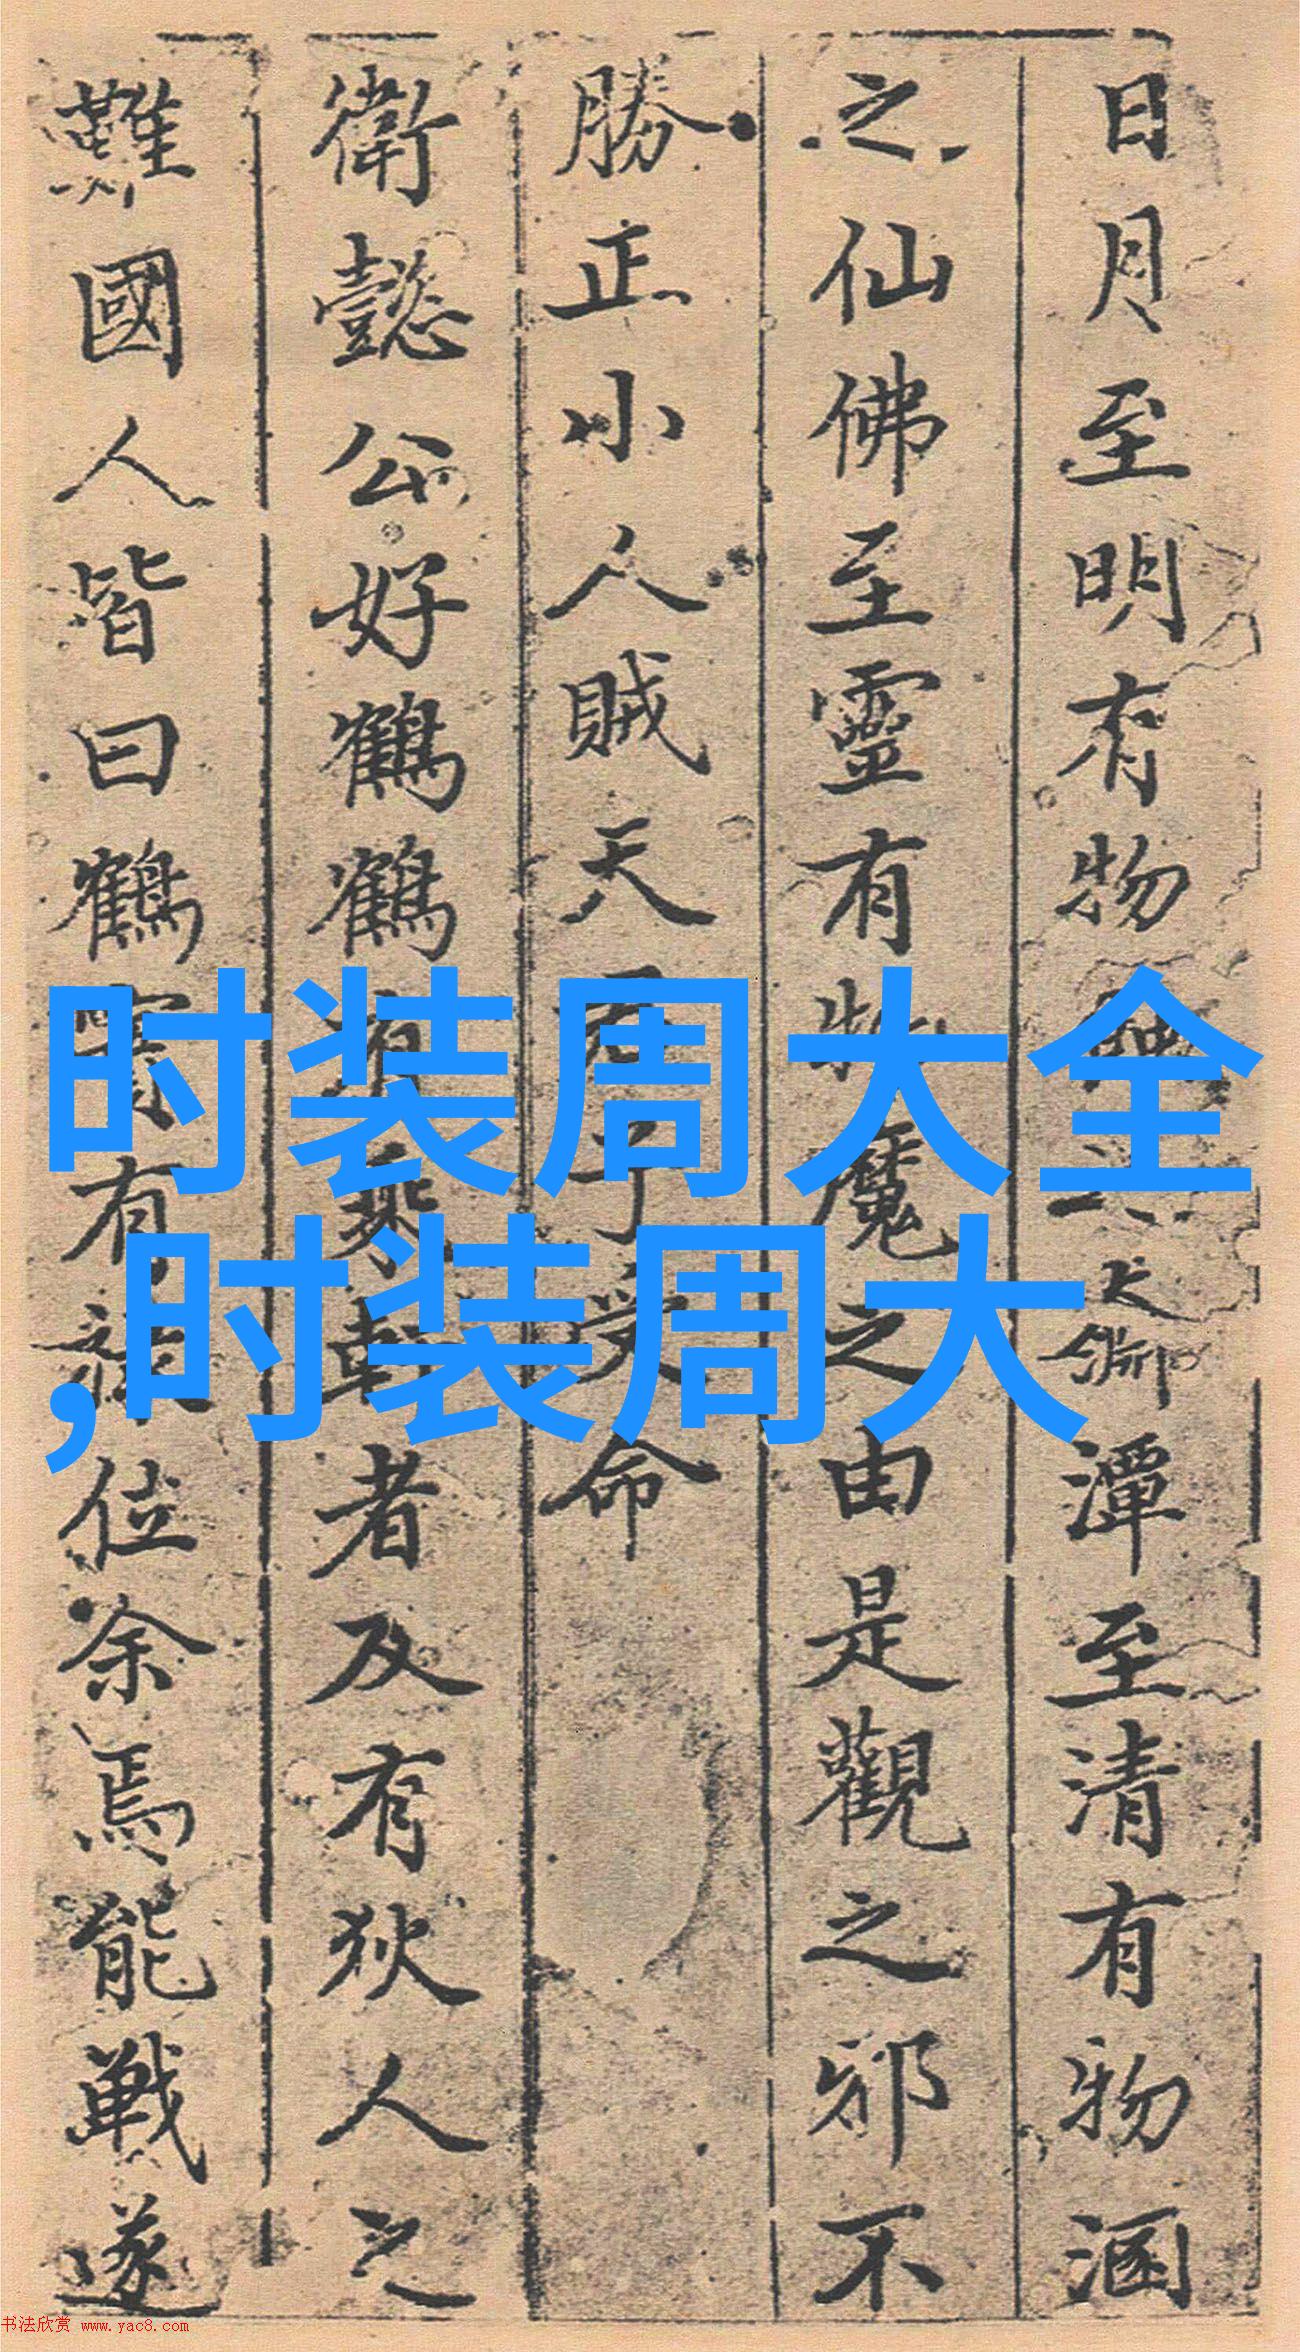 日月至明有物
潭至清有物涵
之仙佛至靈有物魔之由是觀之邪不
勝正小人賊天
受命
衛懿公好鶴鶴有乘軒者及有狄人之
難國人皆曰鶴實有祿位余焉能戰遂
时装周大全
,时装周大
书法欣赏 www.yac8.com